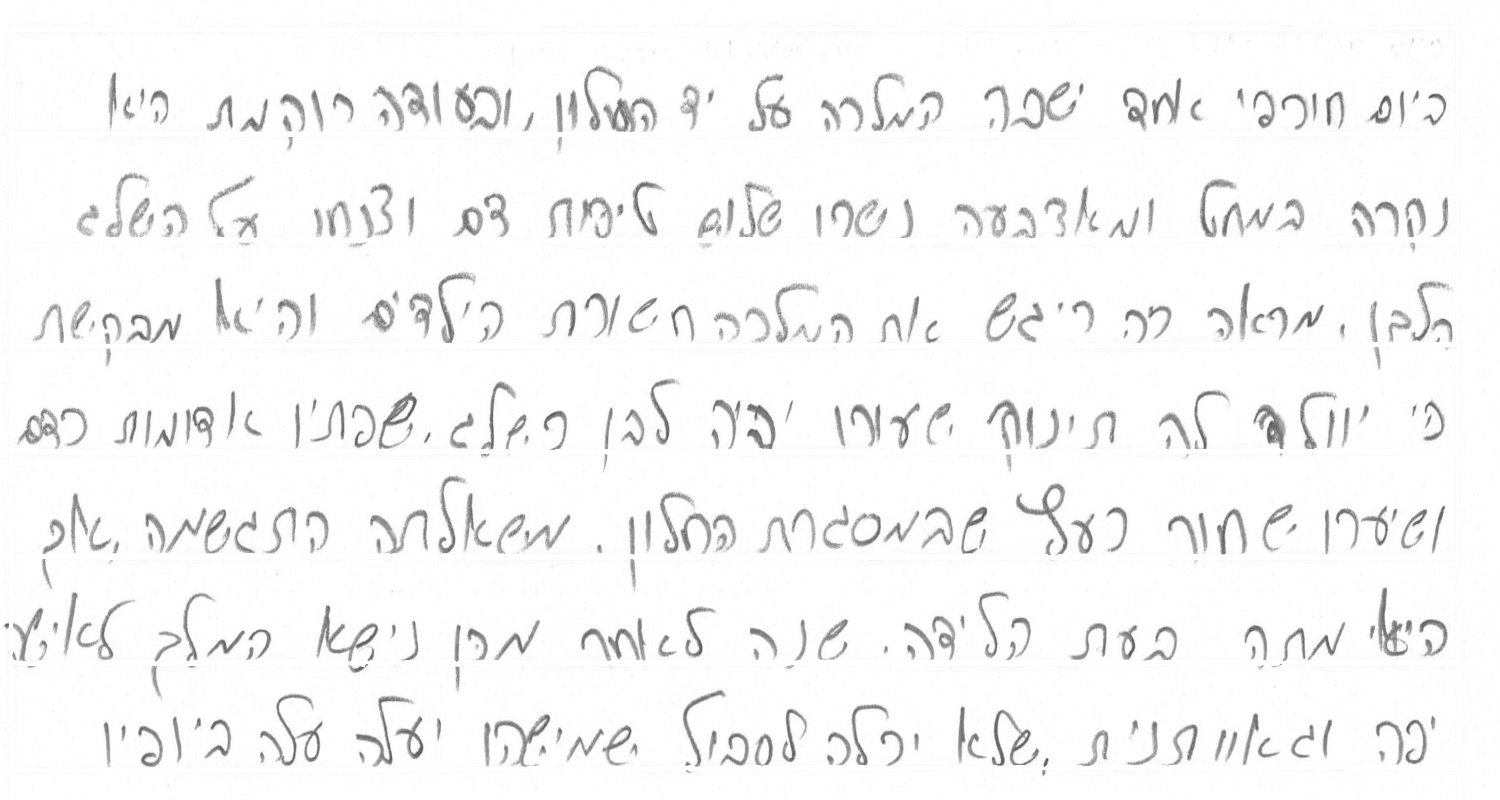 ביום חורפי אחד ישבה המלכה על יד החלון, ובעודה רוקמת היא
נקרה במחט ומאצבעה נשרו שלוש טיפות דם וצנחו על השלג
הלבן. מראה זה ריגש את המלכה חשוכת הילדים והיא מבקשת
כי יוולד לה תינוק שעורו יהיה לבן כשלג, שפתיו אדומות כדם
ושיערו שחור כעץ שבמסגרת החלון. משאלתה התגשמה, אך
היא מתה בעת הלידה. שנה לאחר מכן נישא המלך לאישה
יפה וגאוותנית, שלא יכלה לסבול שמישהו יעלה עלה ביופיו